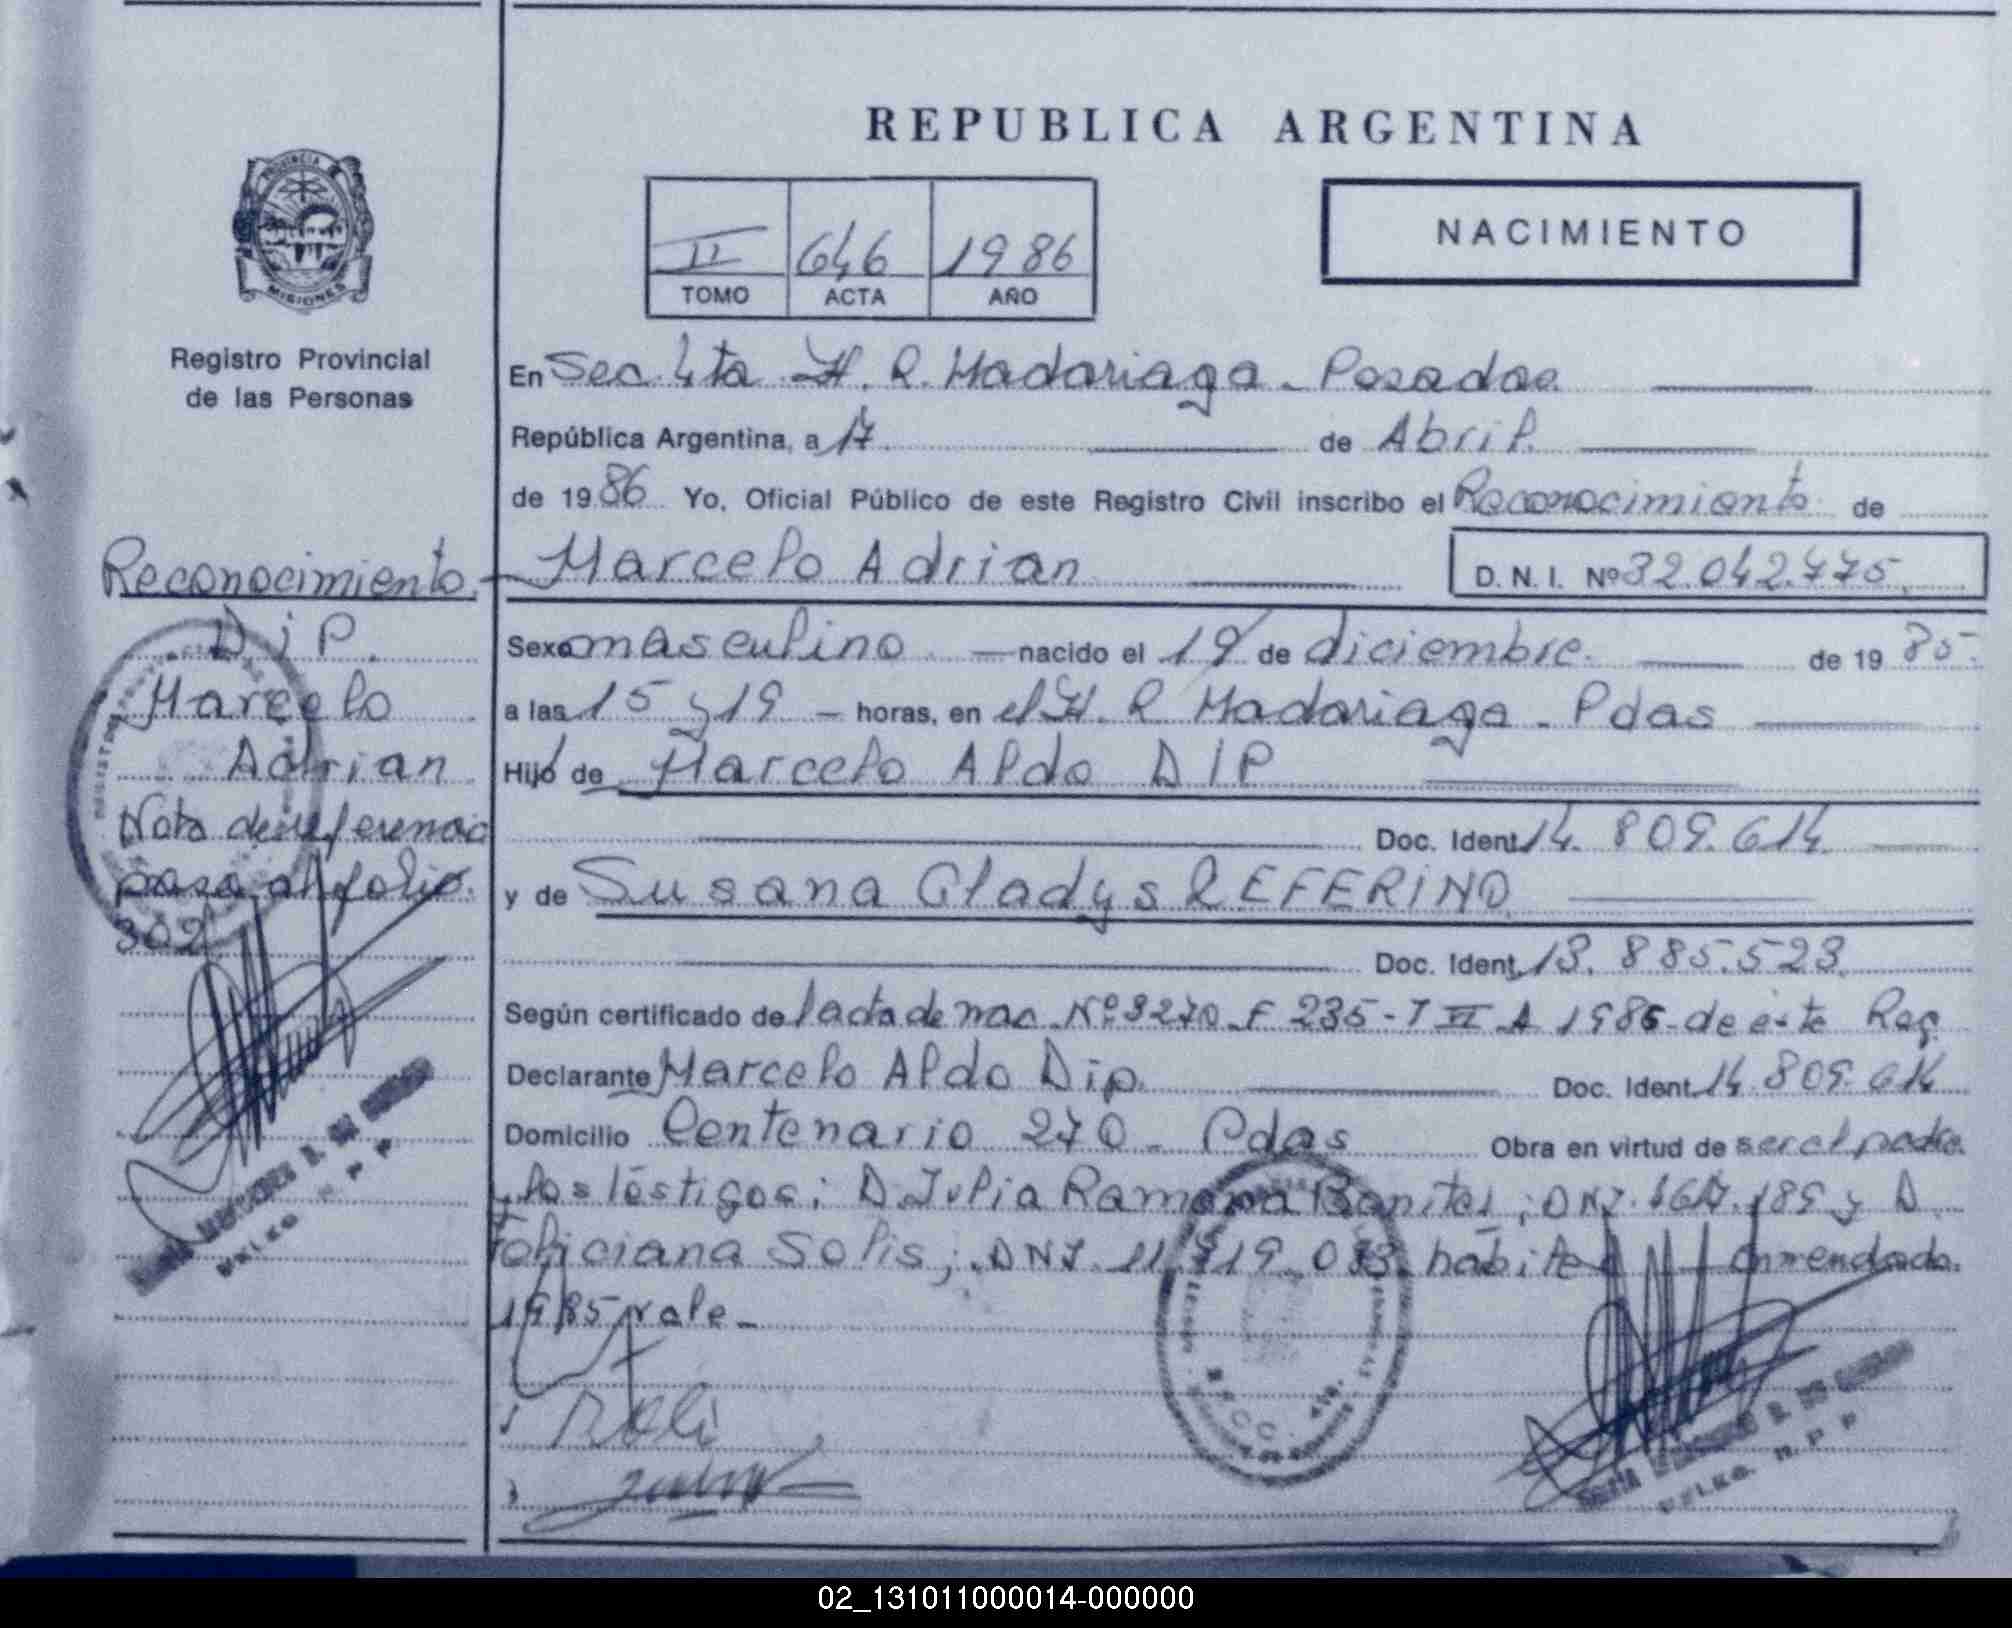 REPUBLICA ARGENTINA
PROVINCIA DE
MISIONES
Registro Provincial
de las Personas
II 646 1986
TOMO ACTA AÑO
NACIMIENTO
En Sec. 4ta H. R. Madariaga - Posadas
República Argentina, a 17 de Abril.
de 1986 Yo, Oficial Público de este Registro Civil inscribo el Reconocimiento de
Marcelo Adrian D. N. I. Nº 32.042.775
Sexo masculino nacido el 19 de diciembre. de 19 85.
a las 15 y 19 horas, en el H. R Madariaga - Pdas
Hijo de Marcelo Aldo DIP
Doc. Ident. 14. 809. 614
y de Susana Gladys CEFERINO
Doc. Ident. 13. 885.523
Según certificado de / acta de nac. Nº 3270 F 235 - T II A 1985 - de este Reg.
Declarante Marcelo Aldo Dip. Doc. Ident. 14 809. 614
Domicilio Centenario 270 - Pdas Obra en virtud de ser el padre
y los testigos: D. Julia Ramona Benitez; DNI. 189 y D.
Feliciana Solis; DNI. 11. 719. 033 habites enmendado.
1985 vale -
Reconocimiento
Dip.
Marcelo
Adrian
Nota de referencia
pasa al folio.
302
02_131011000014-000000